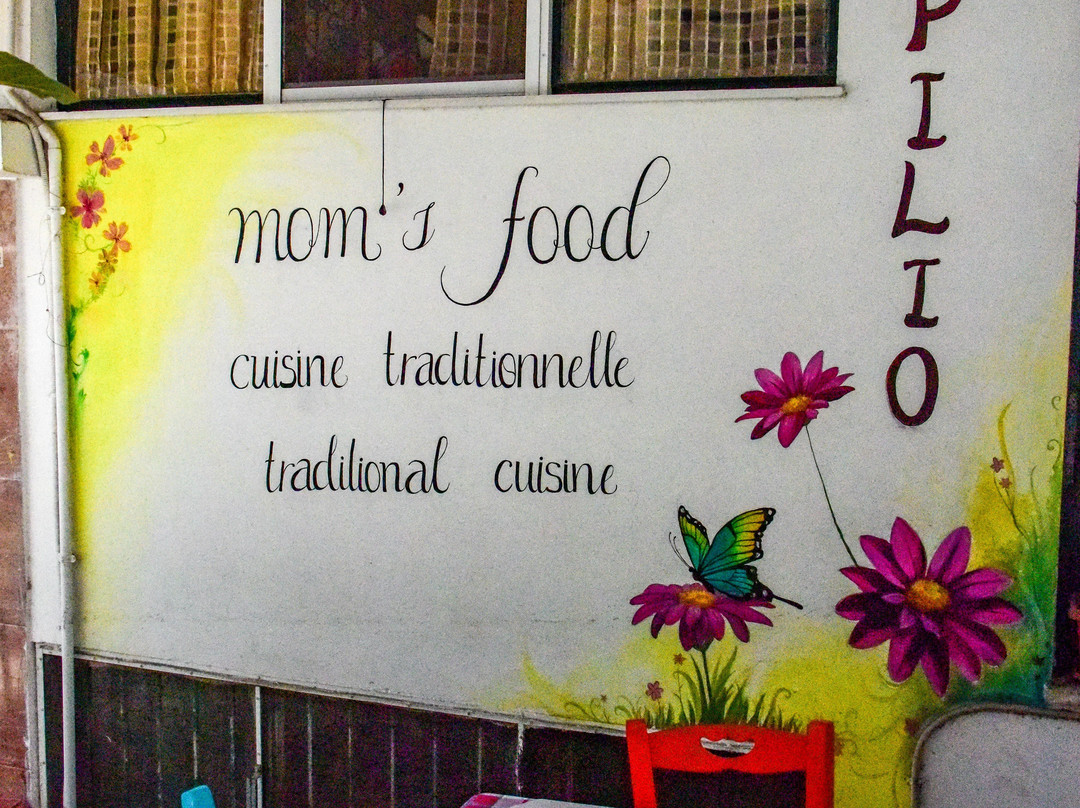 mom's food
cuisine traditionnelle
traditional cuisine
PILIO